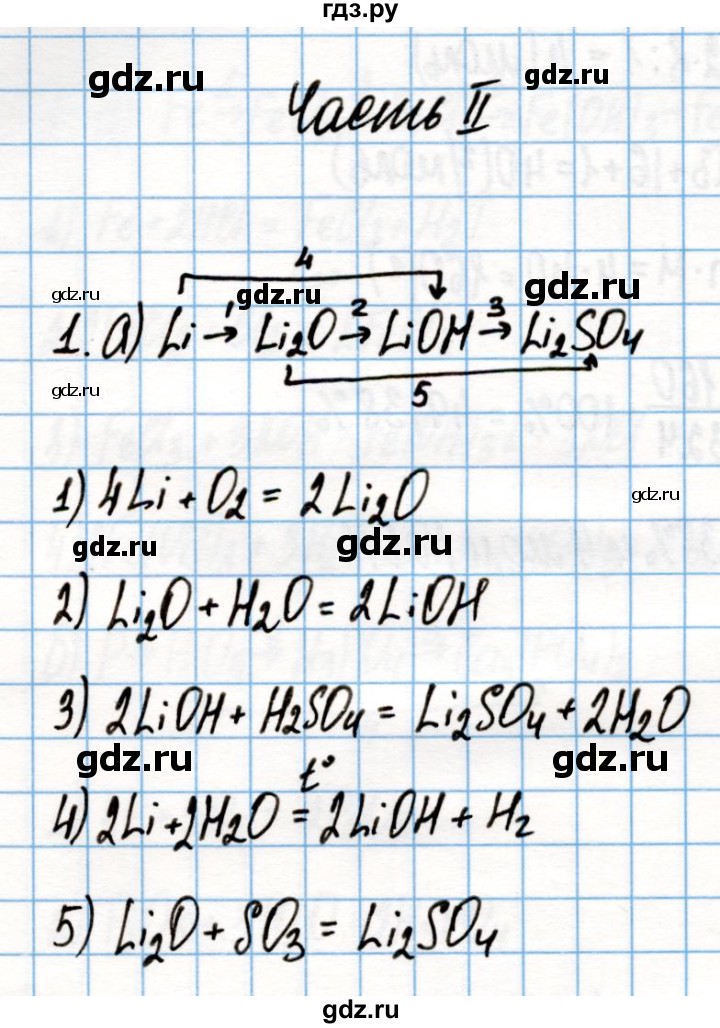 гдз.ру
gdz.ru
gdz.ru
Часть II
4
gdz.ru
gdz.ru
gdz.ru
1. а) Li →¹ Li₂O →² LiOH →³ Li₂SO₄
gdz.ru
5
1) 4Li + O₂ = 2Li₂O
gdz.ru
gdz.ru
gdz.ru
2) Li₂O + H₂O = 2LiOH
3) 2LiOH + H₂SO₄ = Li₂SO₄ + 2H₂O
gdz.ru
gdz.ru
t°
4) 2Li + 2H₂O = 2LiOH + H₂
5) Li₂O + SO₃ = Li₂SO₄
gdz.ru